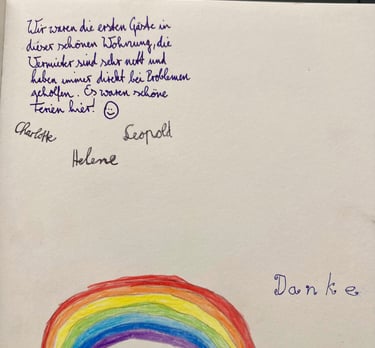 Wir waren die ersten Gäste in
dieser schönen Wohnung, die
Vermieter sind sehr nett und
haben immer direkt bei Problemen
geholfen. Es waren schöne
Ferien hier! ☺
Charlotte
Leopold
Helene
Danke